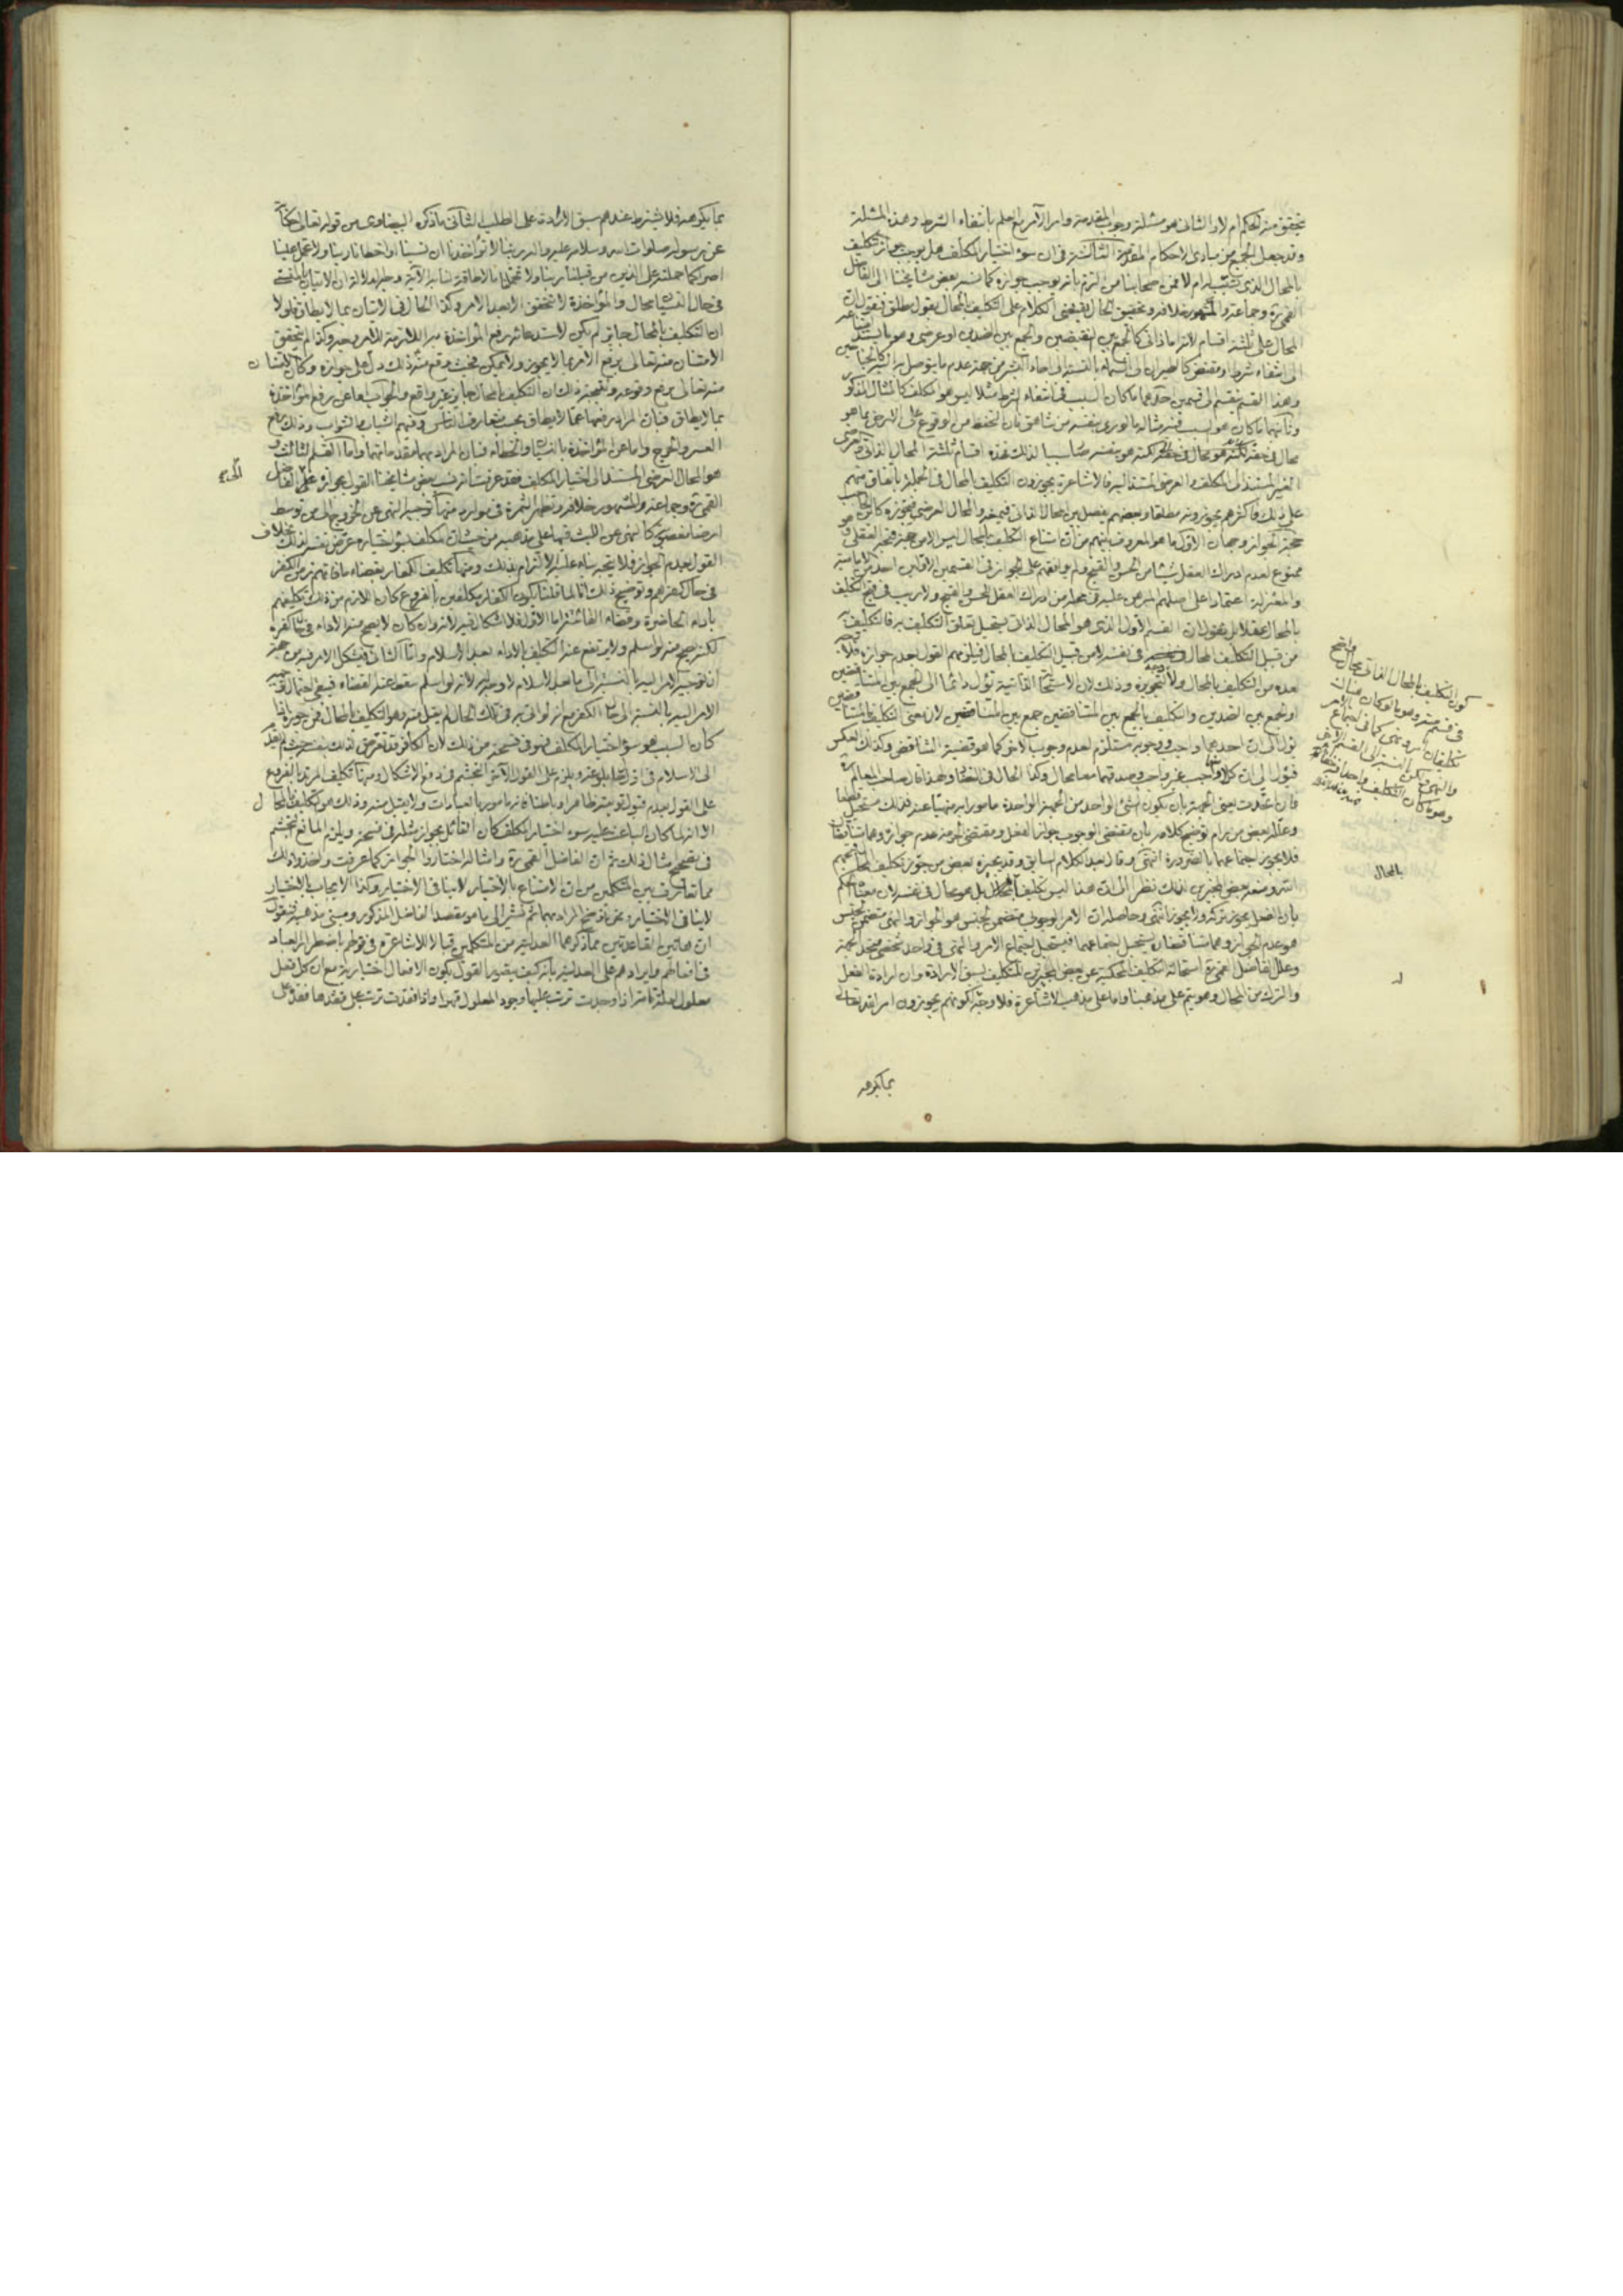 يتحقق منه الحكم ام لا والثاني هو مسئلة وجوب المقدمة وامر الآمر مع العلم بانتفاء الشرط وهذه المسئلة
وقد جعل الجميع من مبادي الاحكام المقدمة الثالثة في ان سوء اختيار المكلف هل يوجب جواز تكليف
بالمحال الذي ام لا فمن اصحابنا من التزم بأنه يوجب جوازه كما نسبه بعض مشايخنا الى الفاضل
القمي ره وجماعة والمشهور خلافه وتحقيق الحال يقتضي الكلام على التكليف بالمحال بقول مطلق فنقول ان
المحال على ثلثة اقسام لانه اما ذاتي كالجمع بين النقيضين والجمع بين الضدين او عرضي وهو ما
الى انتفاء شرط او مقتض كالطيران في السماء بالنسبة الى احاد البشر من جهة عدم ما يتوصل به اليه
وهذا القسم ينقسم الى قسمين احدهما ما كان السبب في انتفاء الشرط مثلا ليس هو المكلف كالمثال المذكور
وثانيهما ما كان هو السبب فيه مثاله ما لو رمى بنفسه من شاهق فان التحفظ من الوقوع على الارض مما هو
محال في حقه لكنه هو بنفسه صار سببا لذلك فهذه اقسام ثلثة المحال الذاتي والعرضي
الغير المستند الى المكلف والعرضي المستند اليه فالاشاعرة يجوزون التكليف بالمحال في الجملة باتفاق منهم
على ذلك فاكثرهم يجوزونه مطلقا وبعضهم يفصل بين المحال الذاتي فيمنعه والمحال العرضي فيجوزه
حجة الجواز وجهان الاول ما هو المعروف بينهم من ان امتناع التكليف بالمحال ليس الا من جهة قبحه العقلي وهو
ممنوع لعدم ادراك العقل شيئا من الحسن والقبح ولم يوافقهم على الجواز في القسمين الاولين احد من الامامية
والمعتزلة اعتمادا على اصلهم المبرهن عليه في محله من ادراك العقل الحسن والقبح ولا ريب في قبح التكليف
بالمحال عقلا بل نقول ان القسم الاول الذي هو المحال الذاتي يستحيل تعلق التكليف به فالتكليف به
من قبيل التكليف المحال في نفسه لا من قبيل التكليف بالمحال فيلزمهم القول بعدم جوازه فلا وجه
لعده من التكليف بالمحال ولا لتجويزه وذلك لان الاستحالة الذاتية تؤل دائما الى الجمع بين المتناقضين
او الجمع بين الضدين والتكليف بالجمع بين المتناقضين جمع بين المتناقضين لان معنى التكليف بالمتناقضين
يؤل الى ان احدهما واجب ووجوبه مستلزم لعدم وجوب الاخر كما هو قضية التناقض وكذلك العكس
فيؤل الى ان كلا منهما واجب غير واجب وصدقهما معا محال وكذا الحال في الضدان وهذا قال صاحب المعالم ره
فان اتحدت يعني الجهة بان يكون الشئ الواحد من الجهة الواحدة مامورا به منهيا عنه فذلك مستحيل قطعا
وعلله بعض من رام توضيح كلامه بان مقتضى الوجوب جواز الفعل ومقتضى الحرمة عدم جوازه وهما متناقضان
فلا يجوز اجتماعهما بالضرورة انتهى وقال بعد الكلام السابق وقد يجيزه بعض من جوز تكليف المحال قبحهم
الله ومنعه بعض المجيزين لذلك نظرا الى ان هذا ليس تكليفا بالمحال بل هو محال في نفسه لان معناه الحكم
بان الفعل يجوز تركه ولا يجوز انتهى وحاصله ان الامر للوجوب متضمن لجنس هو الجواز والنهي متضمن لجنس
هو عدم الجواز وهما متناقضان يستحيل اجتماعهما فيستحيل اجتماع الامر والنهي في واحد شخصي متحد الجهة
وعلل الفاضل القمي ره استحالة التكليف المحكية عن بعض المجيزين للتكليف بسبق الارادة وان ارادة الفعل
والترك من المحال وهو يتم على مذهبنا واما على مذهب الاشاعرة فلا وجه له لكونهم يجوزون امر الله تعالى
بما يكرهه
كون التكليف بالمحال الذاتي محال واضح
في قسم منه وهو ما لو كان هناك
تكليفان امر ونهي كما في اجتماع الامر
والنهي ولكن بالنسبة الى القسم الاخر
وهو ما كان التكليف واحدا
بالمحال
بما يكرهه فلا يشترط عندهم سبق الارادة على الطلب الثاني ما ذكره البيضاوي من قوله تعالى حكاية
عن رسوله صلوات الله وسلامه عليه وآله ربنا لا تؤاخذنا ان نسينا او اخطانا ربنا ولا تحمل علينا
اصرا كما حملته على الذين من قبلنا ربنا ولا تحملنا ما لا طاقة لنا به الآية وجه الدلالة ان الاتيان بالمنسي
في حال النسيان محال والمؤاخذة لا تتحقق الا بعد الامر وكذا الحال في الاتيان بما لا يطاق فلولا
ان التكليف بالمحال جائز لم يكن لاستدعائه رفع المؤاخذة عن اللازمة للامر وجه وكذا لم يتحقق
الامتنان منه تعالى برفع الامر بما لا يجوز ولا يمكن فحيث وقع منه ذلك دل على جوازه وكان الامتنان
منه تعالى برفع وقوعه ونتيجة ذلك ان التكليف بالمحال جائز غير واقع والجواب اما عن رفع المؤاخذة
بما لا يطاق فبان المراد رفعها عما لا يطاق بحسب متعارف الناس وفهم الشبان والشواب وذلك رفع
العسر والحرج واما عن المؤاخذة بالنسيان والخطاء فبان المراد بهما مقدماتهما واما القسم الثالث و
هو المحال العرضي المستند الى اختيار المكلف فقد عرفت انه نسب بعض مشايخنا القول بجوازه الى الفاضل
القمي ره وجماعة والمشهور خلافه وتظهر الثمرة في موارد منها توجيه النهي عن الخروج الى من توسط
ارضا مغصوبة كالنهي عن اللبث فيها على مذهبه من حيث ان المكلف بسوء اختياره عرض نفسه لذلك بخلاف
القول بعدم الجواز فلا يتجه بناء عليه الالتزام بذلك ومنها تكليف الكفار بقضاء ما فاتهم زمن الكفر
في حال كفرهم وتوضيح ذلك انا لما قلنا بكون الكفار مكلفين بالفروع كان اللازم من ذلك تكليفهم
باداء الحاضرة وقضاء الفائتة اما الاول فلا اشكال فيه لانه وان كان لا يصح منه الاداء في حال كفره
لكنه يصح منه لو اسلم ولا يرتفع عنه التكليف بالاداء بعد الاسلام واما الثاني فيشكل الامر فيه من جهة
ان توجيه الامر اليه بالنسبة الى ما بعد الاسلام لا وجه له لانه لو اسلم سقط عنه القضاء فيبقى احتمال توجيه
الامر اليه بالنسبة الى حال الكفر مع انه لو اتى به في تلك الحال لم يقبل منه وهو التكليف بالمحال فمن جوزه اذا
كان السبب هو سوء اختيار المكلف فهو في فسحة من ذلك لان الكافر قد عرض لذلك نفسه حيث لم يبادر
الى الاسلام في اول بلوغه ويلزم على القول الاخر التجشم في دفع الاشكال ومنها تكليف المرتد بالفروع
على القول بعدم قبول توبته ظاهرا وباطنا فانه مامور بالعبادات ولا يقبل منه وذلك هو التكليف بالمحال
الا انه لما كان الباعث عليه سوء اختيار المكلف كان القائل بجواز مثله في فسحة ويلزم المانع التجشم
في تصحيح مثال ذلك ثم ان الفاضل القمي ره وامثاله اختاروا الجواز كما عرفت واخذوا ذلك
مما تعارف بين المتكلمين من ان الامتناع بالاختيار لا ينافي الاختيار وكذا الايجاب بالاختيار
لا ينافي الاختيار ونحن نوضح المراد بهما ثم نشير الى ما هو مقصد الفاضل المذكور ومبنى مذهبه فنقول
ان هاتين القاعدتين مما ذكرهما العدلية من المتكلمين قبالا للاشاعرة في قولهم باضطرار العباد
في افعالهم وايرادهم على العدلية بانه كيف يتصور القول بكون الافعال اختيارية مع ان كل فعل
معلول لعلة تامة اذا وجدت ترتب عليها وجود المعلول قهرا واذا فقدت ترتب على فقدها فقد